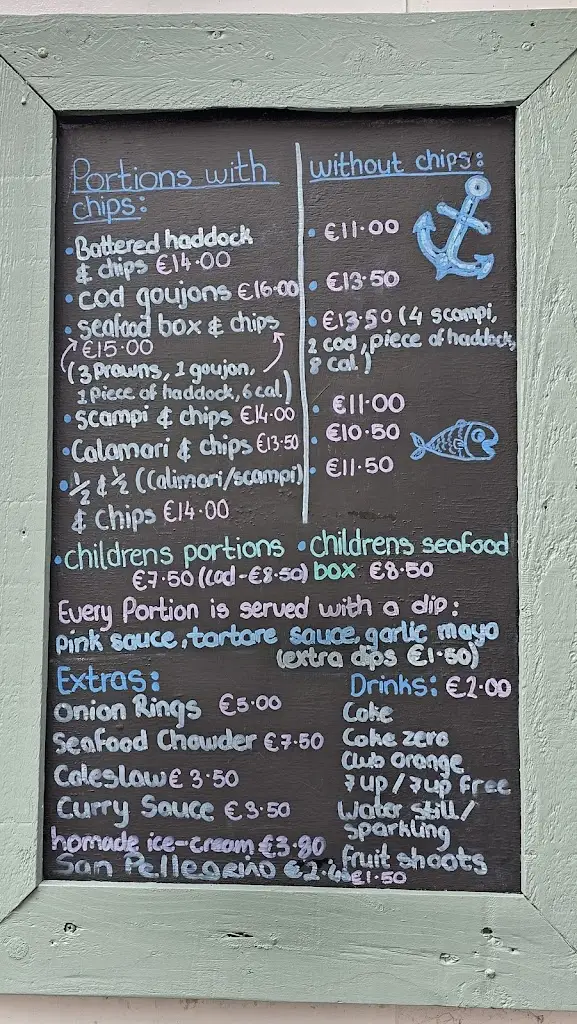 Portions with
chips:
• Battered haddock
& chips €14.00
• cod goujons €16.00
• seafood box & chips
€15.00
(3 Prawns, 1 goujon,
1 Piece of haddock, 6 cal)
• scampi & chips €14.00
• Calamari & chips €13.50
• ½ & ½ (Calimari/scampi)
& chips €14.00
without chips:
• €11.00
• €13.50
• €13.50 (4 scampi,
2 cod, piece of haddock,
8 cal)
• €11.00
• €10.50
• €11.50
• childrens portions
€7.50 (cod - €8.50)
• childrens seafood
box €8.50
Every Portion is served with a dip:
pink sauce, tartare sauce, garlic mayo
(extra dips €1.50)
Extras:
Onion Rings €5.00
Seafood Chowder €7.50
Coleslaw €3.50
Curry Sauce €3.50
homade ice-cream €3.80
San Pellegrino
Drinks: €2.00
Coke
Coke zero
Club orange
7up / 7up free
Water still/
sparkling
fruit shoots
€1.50